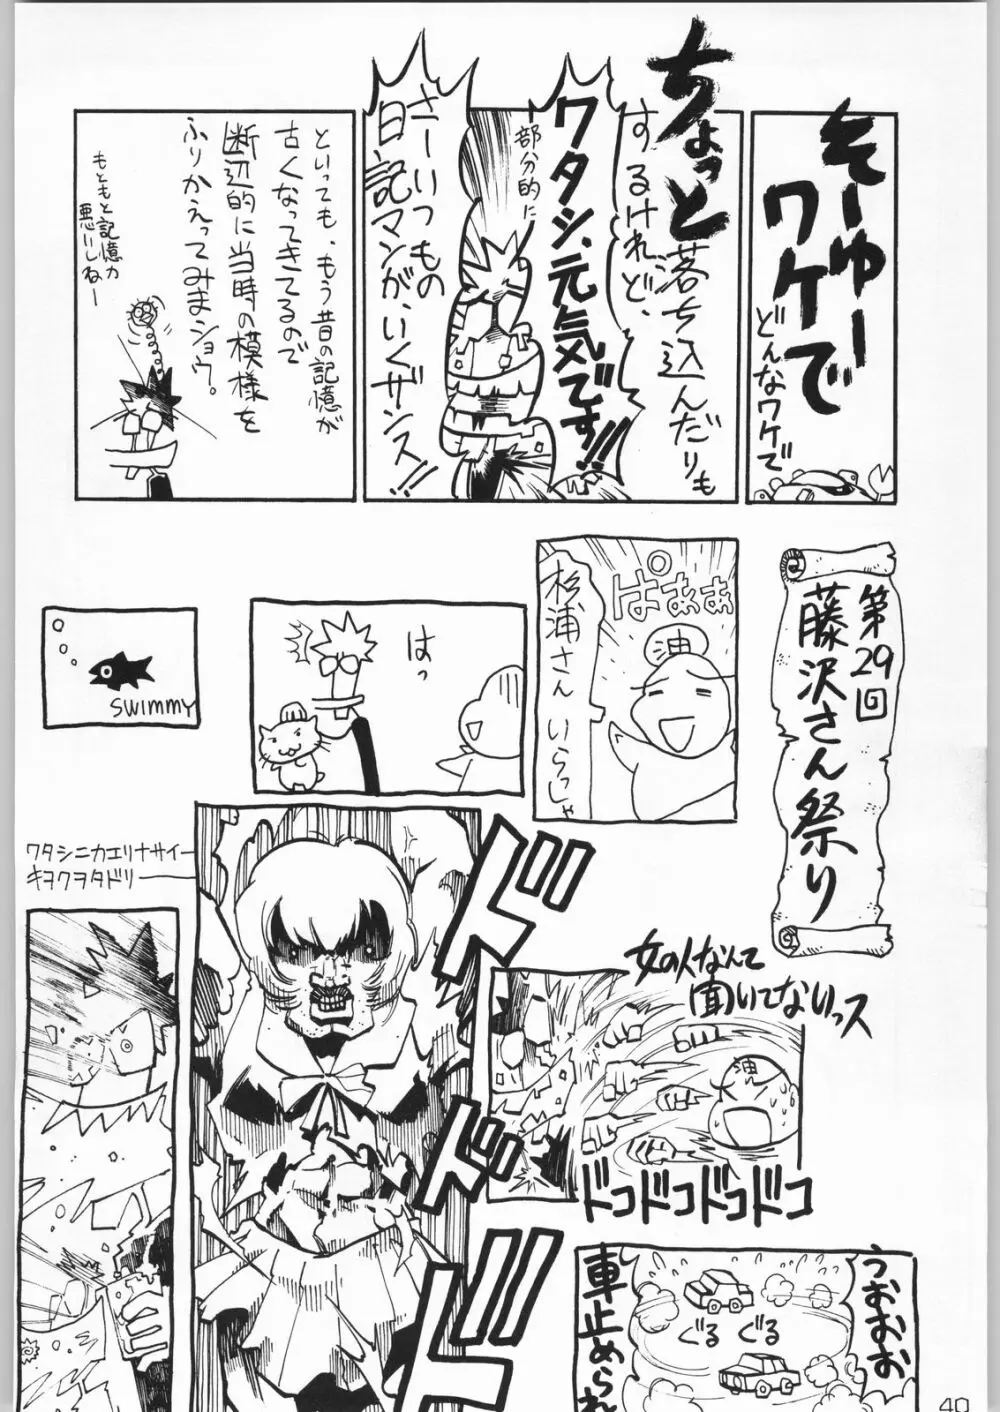 そーゆー
ワケで
どんなワケで
ちょっと
落ち込んだりも
するけれど、
ワタシ、元気です!!
部分的に
さーいつもの
日記マンが、いくザンス!!
といっても、もう昔の記憶が
古くなってきてるので
断辺的に当時の模様を
ふりかえってみまショウ。
もともと記憶力
悪いしねー
第29回
藤沢さん祭り
ぱぁぁぁ
油
杉浦さん いらっしゃ
はっ
SWIMMY
ワタシニカエリナサイー
キヲクヲタドリ
ドドド
女の人なんて
聞いてないっス
油
ドコドコドコドコ
うおおお
ぐる ぐる
車止められ
40